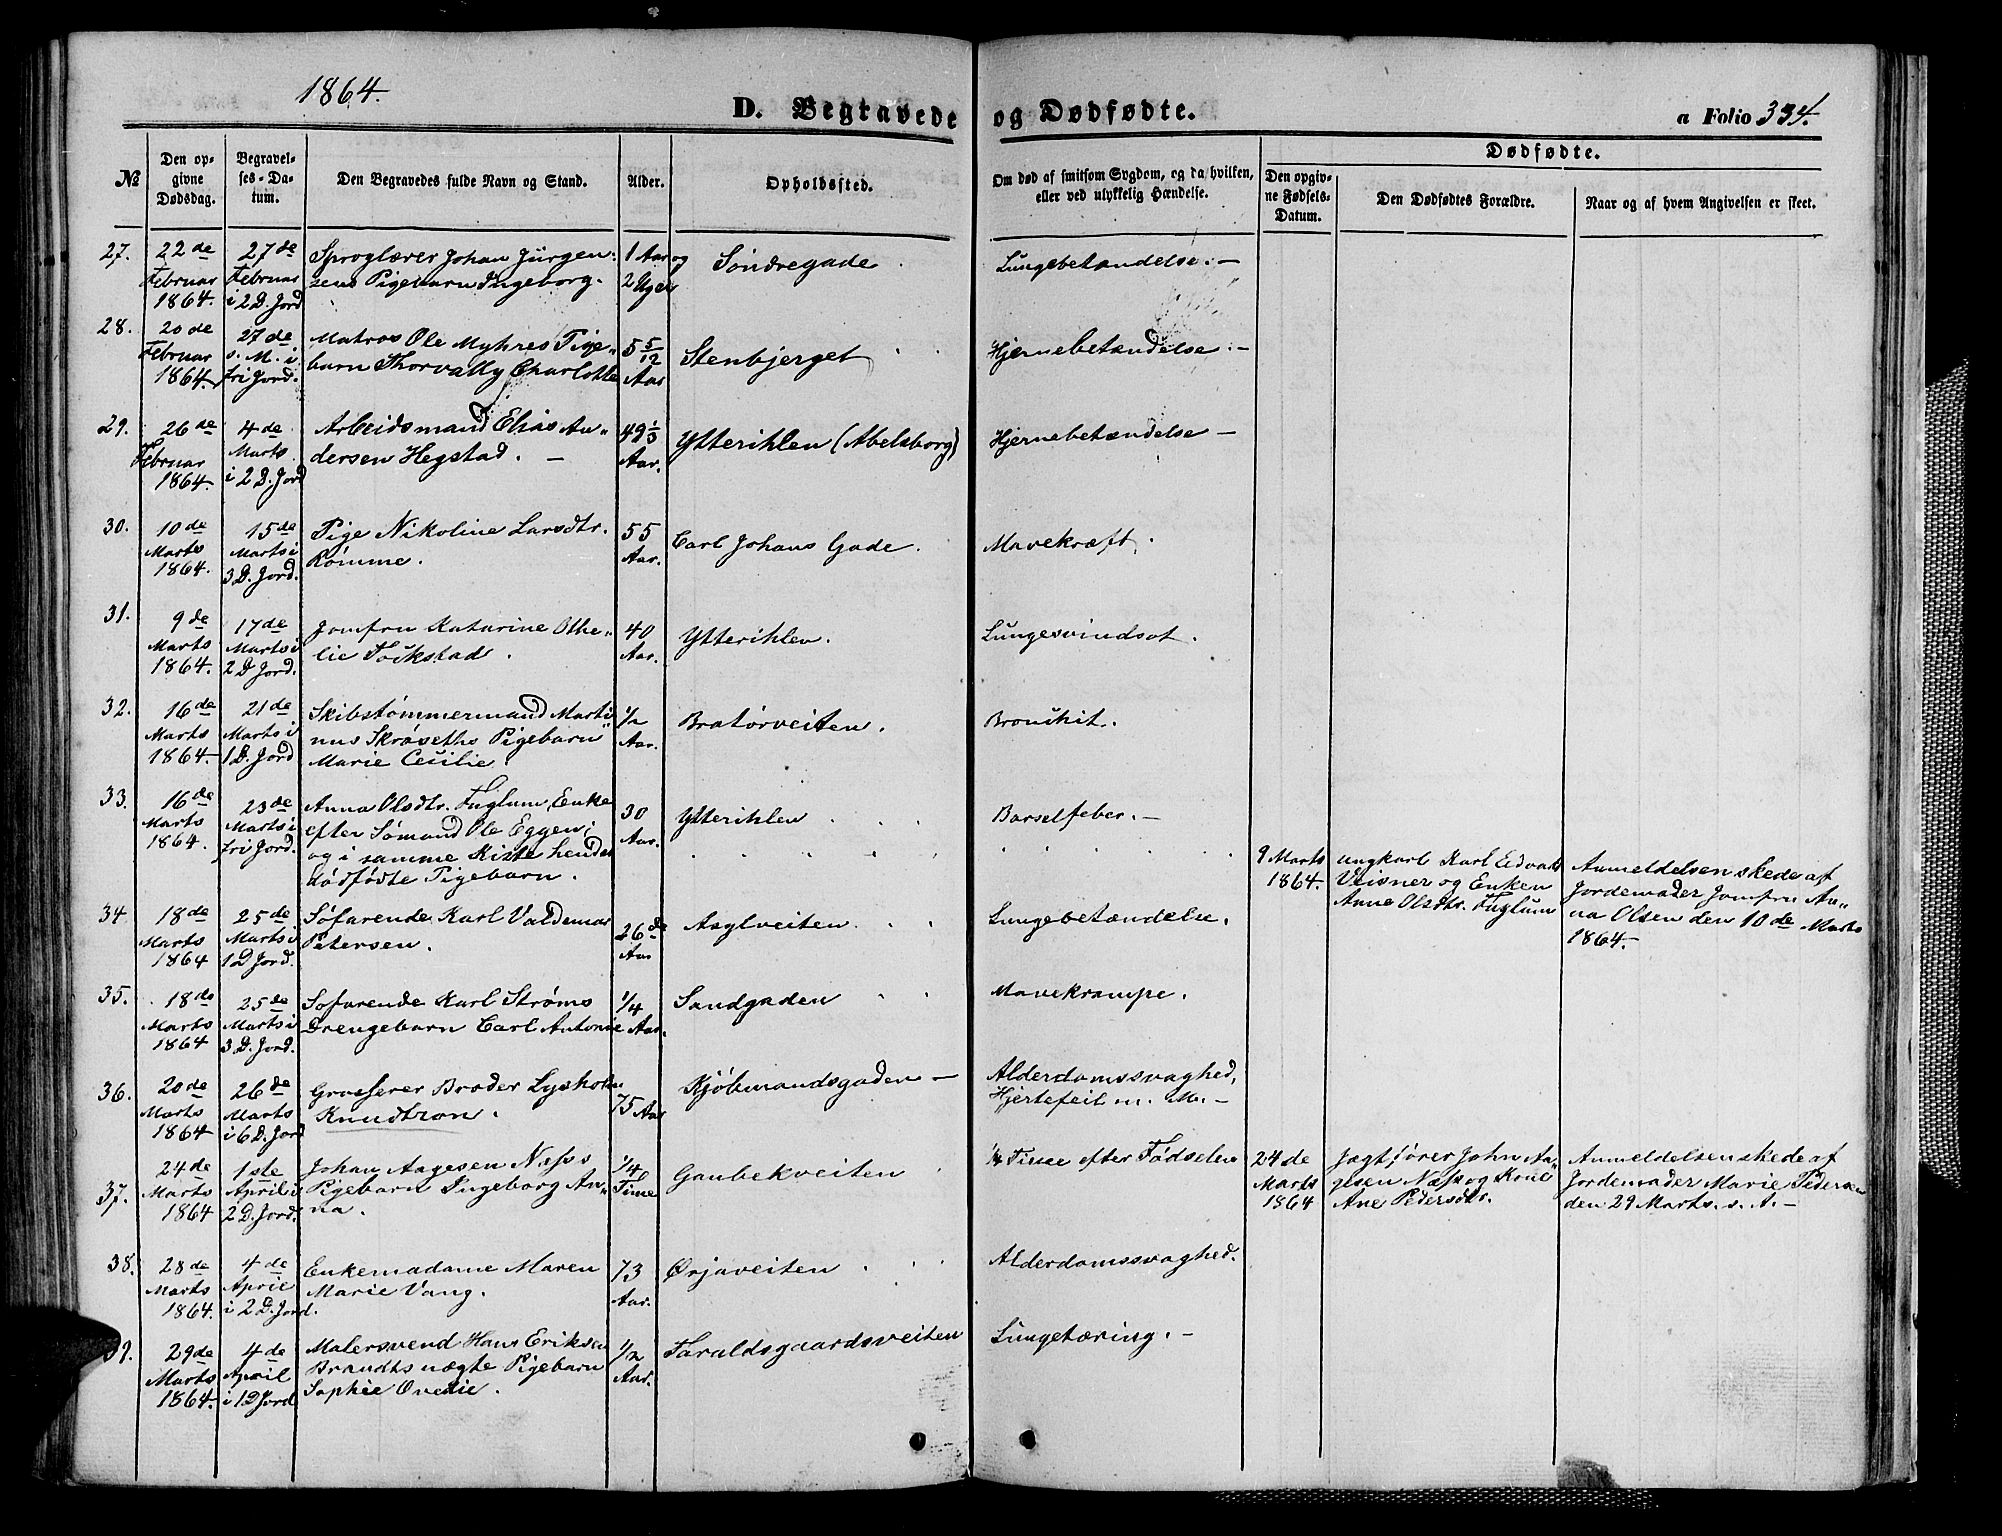 1864.
D. Begravede og Dødfødte.
a Folio 334.
№
Den opgivne Dødsdag.
Begravelses-Datum.
Den Begravedes fulde Navn og Stand.
Alder.
Opholdssted.
Om død af smitsom Sygdom, og da hvilken, eller ved ulykkelig Hændelse.
Dødfødte.
Den opgivne Fødsels-Datum.
Den Dødfødtes Forældre.
Naar og af hvem Angivelsen er skeet.
27. 22de 27de Sproglærer Johan Jürgen- 1 Aar og Søndregade Lungebetændelse. -
Februar Februar sens Pigebarn Ingeborg. 2 Uger
1864. i 2 D. Jord
28. 20de 27de Matros Ole Myhres Pige- 5 5/12 Stenbjerget Hjernebetændelse. -
Februar s. M. i barn Thorvally Charlotte Aar
1864 fri Jord.
29. 26de 4de Arbeidsmand Elias An- 49 1/3 Ytterihlen (Abelsborg) Hjernebetændelse -
Februar Marts dersen Hegstad. - Aar.
1864. i 2 D. Jord
30. 10de 15de Pige Nikoline Larsdtr. 55 Carl Johans Gade. Mavekræft.
Marts Marts i Rømme. Aar.
1864. 3 D. Jord.
31. 9de 17de Jomfru Katarine Othe- 40 Ytterihlen. Lungesvindsot.
Marts Marts i lie Aar.
1864. 2 D Jord.
32. 16de 21de Skibstømmermand Marti- 1/2 Bratørveiten. Bronchit.
Marts Marts i nus Skrøseths Pigebarn Aar.
1864. - 1 D. Jord Marie Cecilie.
33. 16de 23de Anna Olsdtr. Fuglum, Enke 30 Ytterihlen Barselfeber. -
Marts Marts i efter Sømand Ole Eggen; Aar.
1864. fri Jord. og i samme Kiste hendes
dødfødte Pigebarn.
9 Marts Ungkarl Karl Edvard Anmeldelsen skede af
1864. Veisner og Enken Jordemoder Jomfru An-
Anne Olsdtr. Fuglum na Olsen den 10de Marts
1864. -
34. 18de 25de Søfarende Karl Valdemar 26de Asylveiten. Lungebetændelse.
Marts Marts i Petersen. Aar
1864 1 D Jord.
35. 18de 25de Søfarende Karl Strøms 1/4 Sandgaden Mavekrampe.
Marts Marts i Drengebarn Carl Antonie Aar.
1864 3 D. Jord.
36. 20de 26de Grosserer Broder Lysholm 75 Aar Kjøbmandsgaden - Alderdomssvaghed,
Marts Marts Knudtzon. Hjertefeil m. M. -
1864 i 6 D. Jord
37. 24de 1ste Johan Aagesen Næss's 1/4 Gaubekveiten 1/4 Time efter Fødselen 24de Jagtfører John Aa- Anmeldelsen skede af
Marts April i Pigebarn Ingeborg An- Time Marts gesen Næss og Kone Jordemoder Marie Pedersen
1864 2 D. Jord. na. 1864 Ane Pedersdtr. den 29 Marts. s. A. -
38. 28de 4de Enkemadame Maren 73 Ørjaveiten Alderdomssvaghed.
Marts April Marie Vang. Aar.
1864. i 2 D. Jord.
39. 29de 4de Malersvend Hans Eriksen 1/2 Taraldsgaardsveiten Lungetæring. -
Marts April Brandts uægte Pigebarn Aar.
1864. - i 1 D Jord Sophie Ovedie.